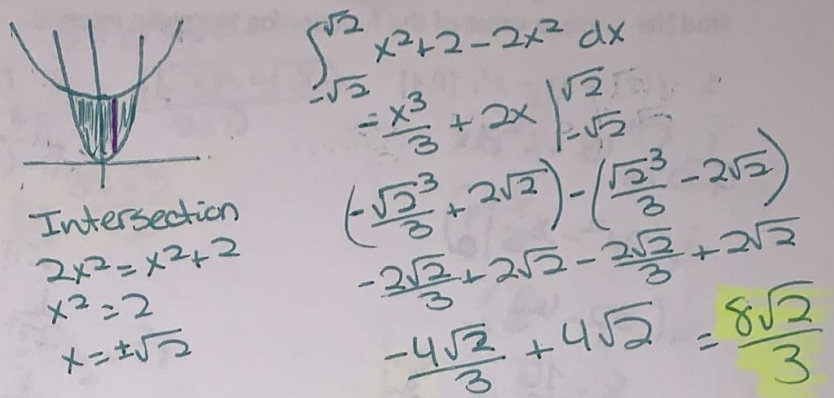 Intersection
2x² = x² + 2
x² = 2
x = ±√2
∫_{-√2}^{√2} x² + 2 - 2x² dx
= -x³/3 + 2x |_{-√2}^{√2}
(-√2³/3 + 2√2) - (√2³/3 - 2√2)
-2√2/3 + 2√2 - 2√2/3 + 2√2
-4√2/3 + 4√2 = 8√2/3